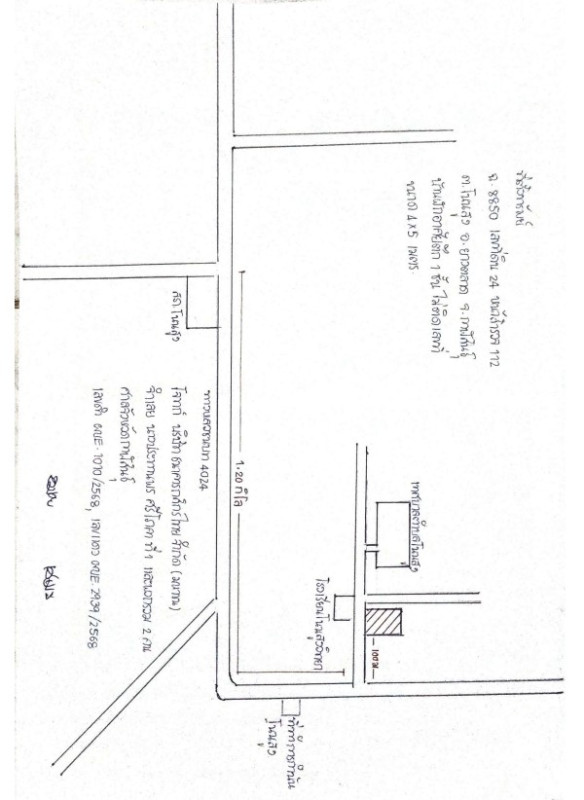 ที่ตั้งทรัพย์
ฉ. 8850 เลขที่ดิน 24 หน้าสำรวจ 112
ต.โนนสูง อ.ยางตลาด จ.กาฬสินธุ์
บ้านพักอาศัยตึก 1 ชั้น ไม่ติดเลขที่
ขนาด 4 x 5 เมตร.
เทศบาลตำบลโนนสูง
100 ม
โรงเรียนโนนสูงวิทยา
1.20 กิโล
รพ.โนนสูง
ที่ทำการกำนัน
โนนสูง
ทางหลวงชนบท 4024
โจทก์ บริษัท ธนาคารกสิกรไทย จำกัด (มหาชน)
จำเลย นางประทานพร ศรีโภคา ที่ 1 และพวกรวม 2 คน
ศาลจังหวัดกาฬสินธุ์
เลขคดี ผบE. 1010/2568, เลขแดง ผบE 2939/2568